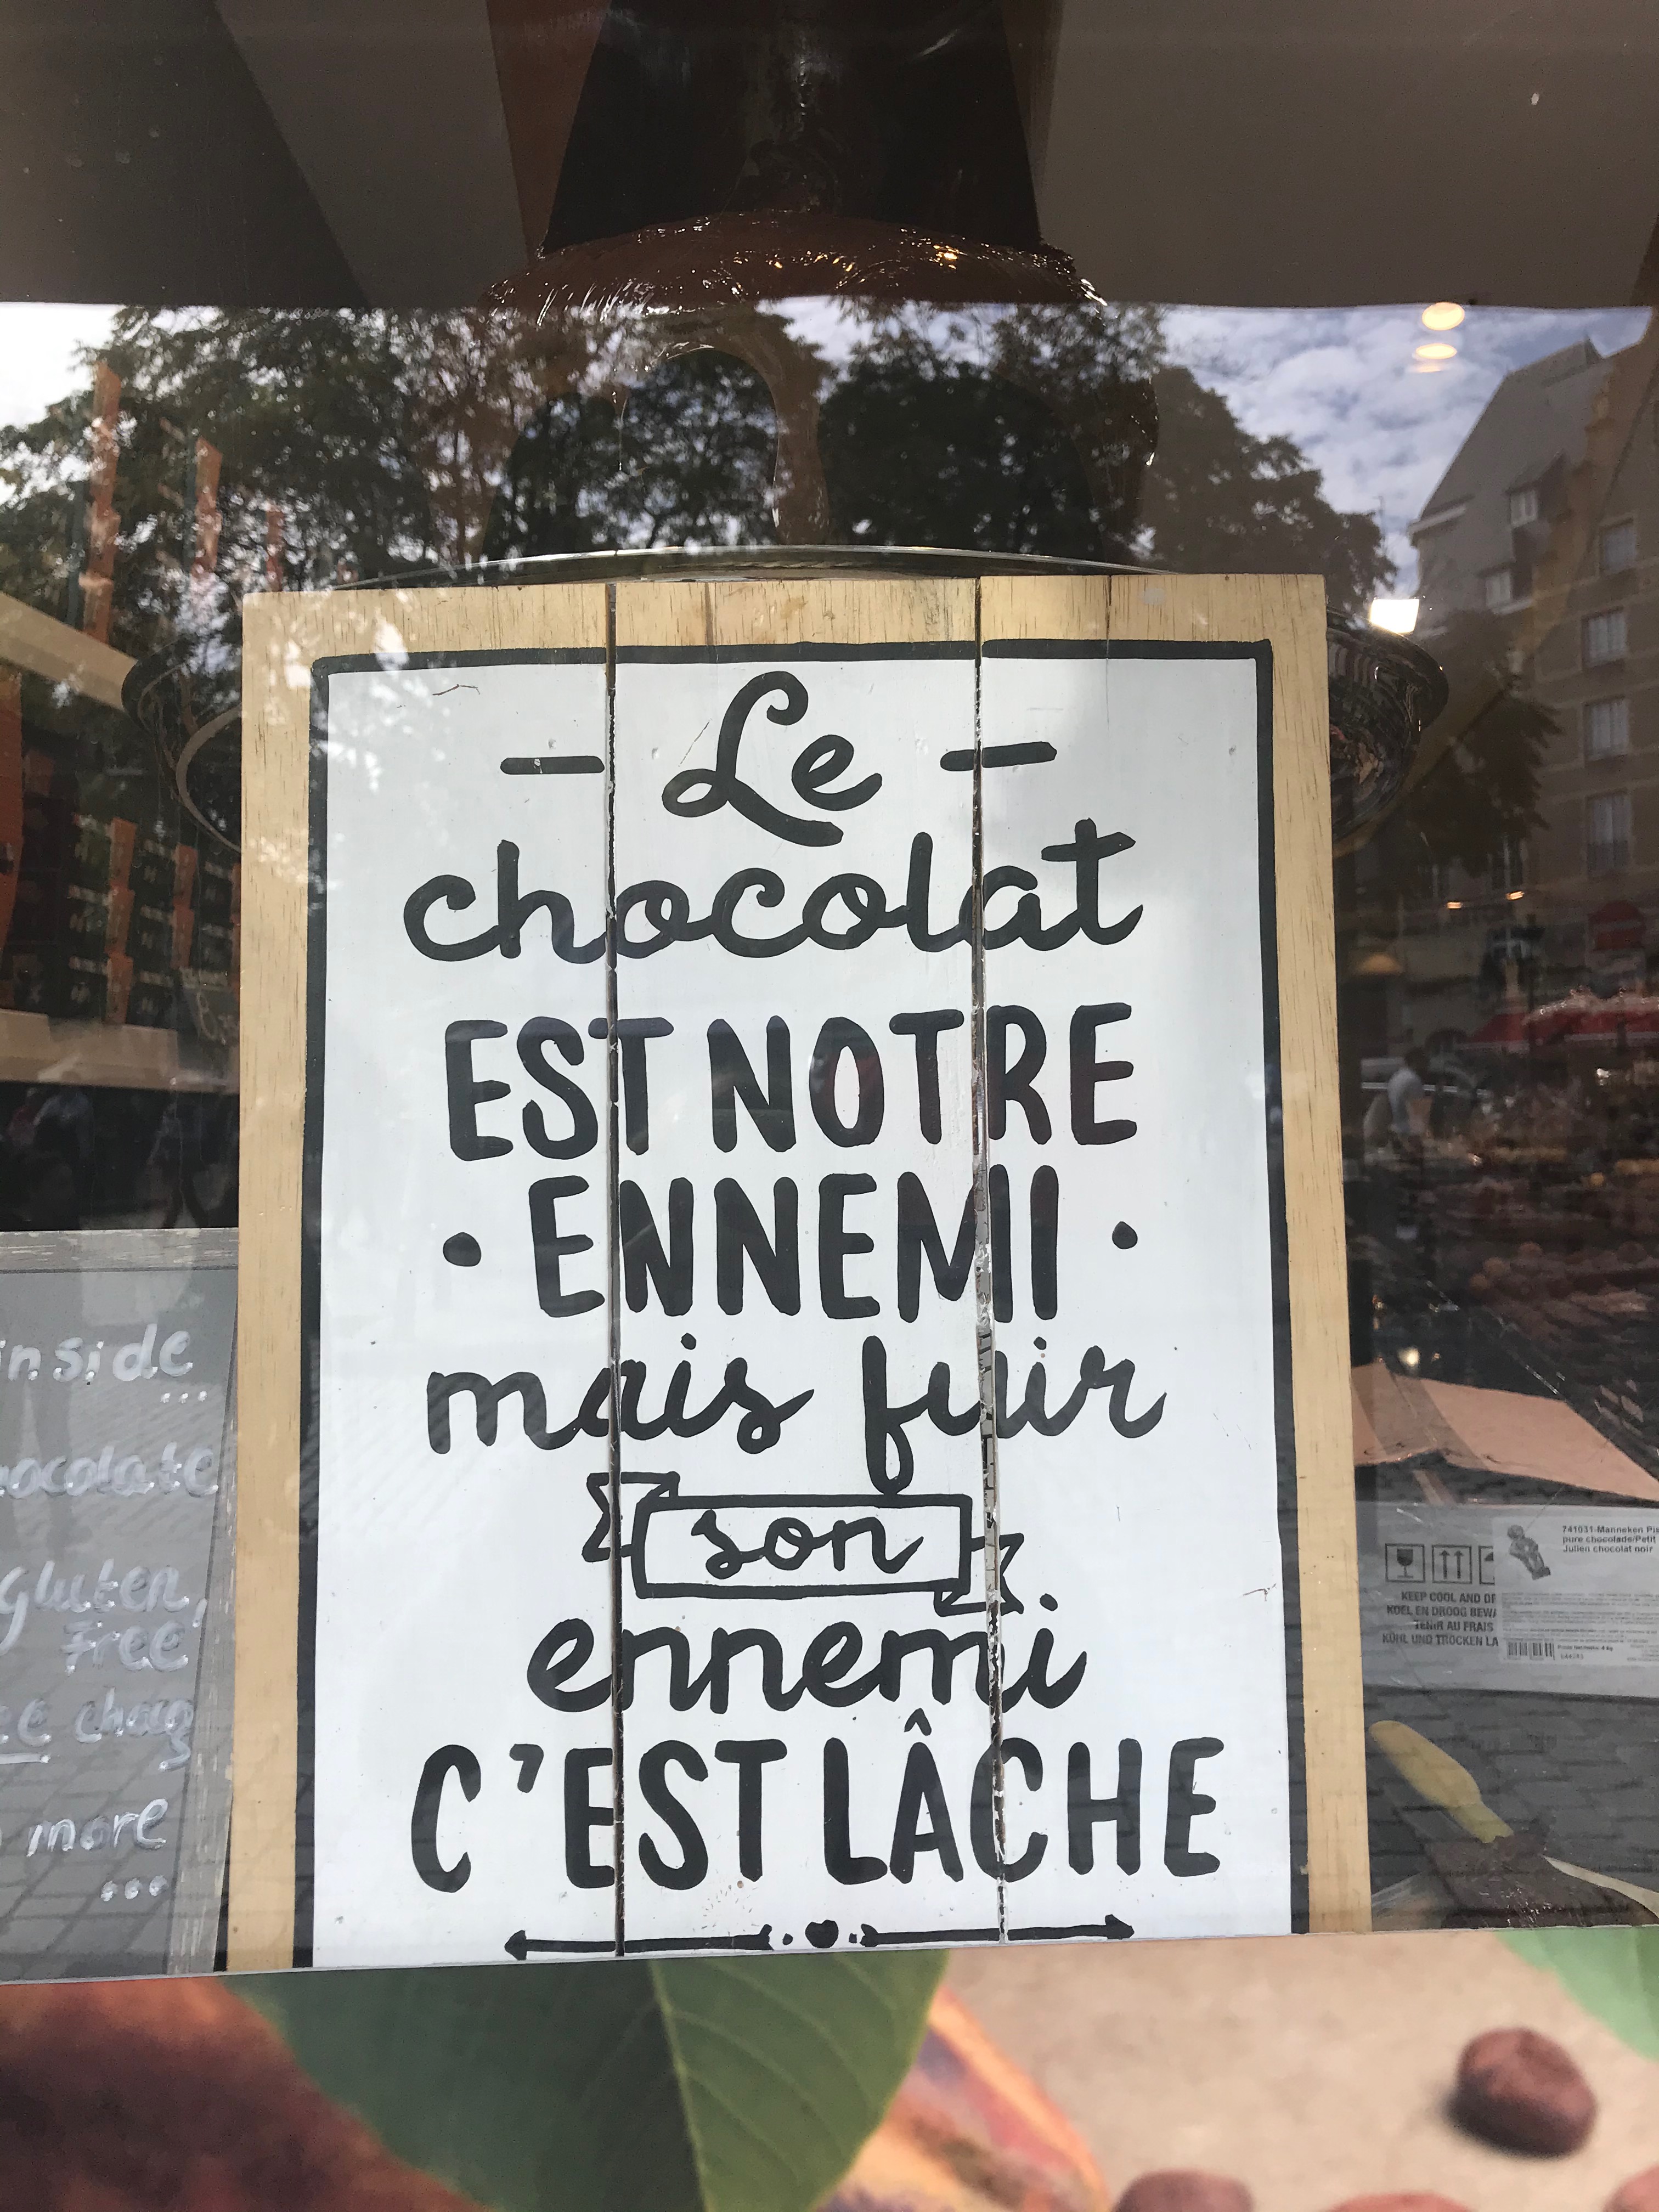 Le
chocolat
EST NOTRE
ENNEMI
mais fuir
son
ennemi
C'EST LÂCHE
inside
...
Gluten
Free
more
...
741031-Manneken Pis
pure chocolade/Petit
Julien chocolat noir
KEEP COOL AND
KOEL EN DROOG
TENIR AU FRAIS
KÜHL UND TROCKEN